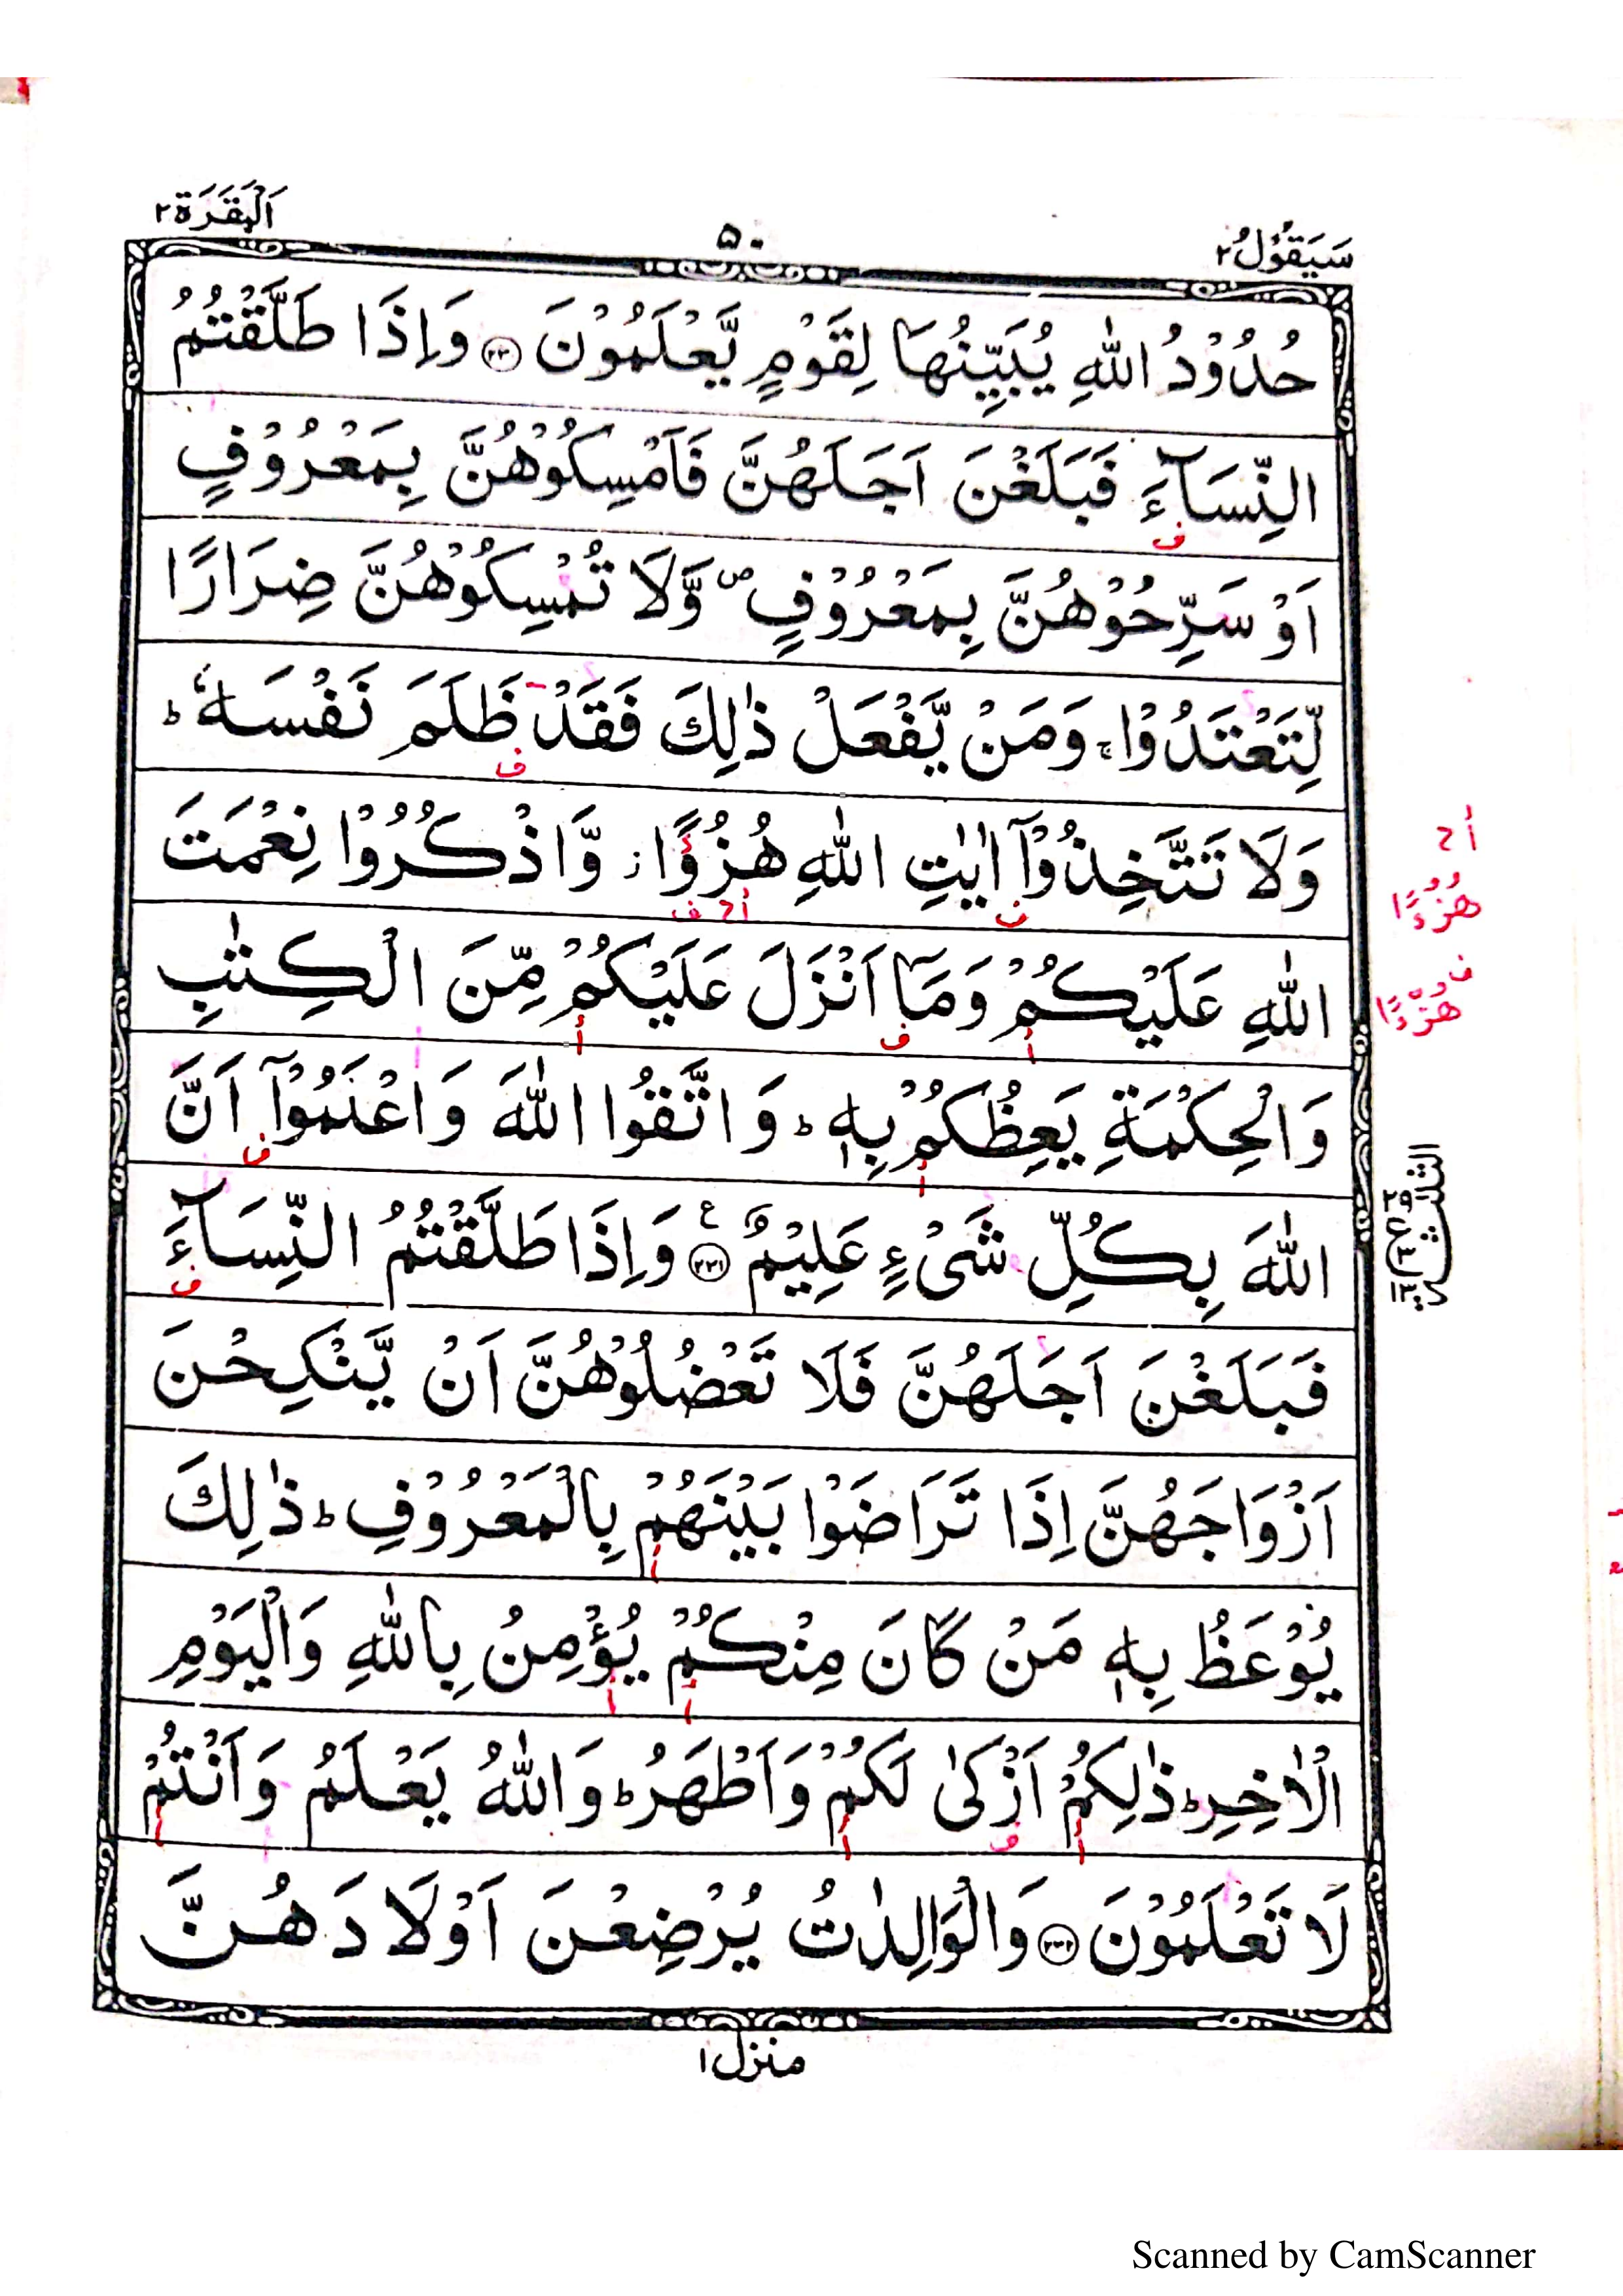 سَيَقُوْلُ ٢
٥٠
اَلْبَقَرَة ٢
حُدُوْدُ اللّٰهِ يُبَيِّنُهَا لِقَوْمٍ يَّعْلَمُوْنَ ﴿٢٣٠﴾ وَاِذَا طَلَّقْتُمُ
النِّسَآءَ فَبَلَغْنَ اَجَلَهُنَّ فَاَمْسِكُوْهُنَّ بِمَعْرُوْفٍ
ف
اَوْ سَرِّحُوْهُنَّ بِمَعْرُوْفٍ ۪ وَّلَا تُمْسِكُوْهُنَّ ضِرَارًا
لِّتَعْتَدُوْا ۚ وَمَنْ يَّفْعَلْ ذٰلِكَ فَقَدْ ظَلَمَ نَفْسَهٗ ؕ
ف
وَلَا تَتَّخِذُوْٓا اٰيٰتِ اللّٰهِ هُزُوًا ز وَّاذْكُرُوْا نِعْمَتَ
ف أ ح ف
أ ح
هُزُءًا
ف
هُزْءًا
اللّٰهِ عَلَيْكُمْ وَمَآ اَنْزَلَ عَلَيْكُمْ مِّنَ الْكِتٰبِ
أ ف أ
وَالْحِكْمَةِ يَعِظُكُمْ بِهٖ ؕ وَاتَّقُوا اللّٰهَ وَاعْلَمُوْٓا اَنَّ
أ ف
اللّٰهَ بِكُلِّ شَيْءٍ عَلِيْمٌ ﴿٢٣١﴾ ع وَاِذَا طَلَّقْتُمُ النِّسَآءَ
ف
الثلثة
فَبَلَغْنَ اَجَلَهُنَّ فَلَا تَعْضُلُوْهُنَّ اَنْ يَّنْكِحْنَ
اَزْوَاجَهُنَّ اِذَا تَرَاضَوْا بَيْنَهُمْ بِالْمَعْرُوْفِ ؕ ذٰلِكَ
أ
يُوْعَظُ بِهٖ مَنْ كَانَ مِنْكُمْ يُؤْمِنُ بِاللّٰهِ وَالْيَوْمِ
أ أ
الْاٰخِرِ ؕ ذٰلِكُمْ اَزْكٰى لَكُمْ وَاَطْهَرُ ؕ وَاللّٰهُ يَعْلَمُ وَاَنْتُمْ
أ ف أ أ
لَا تَعْلَمُوْنَ ﴿٢٣٢﴾ وَالْوَالِدٰتُ يُرْضِعْنَ اَوْلَادَهُنَّ
منزل ١
Scanned by CamScanner